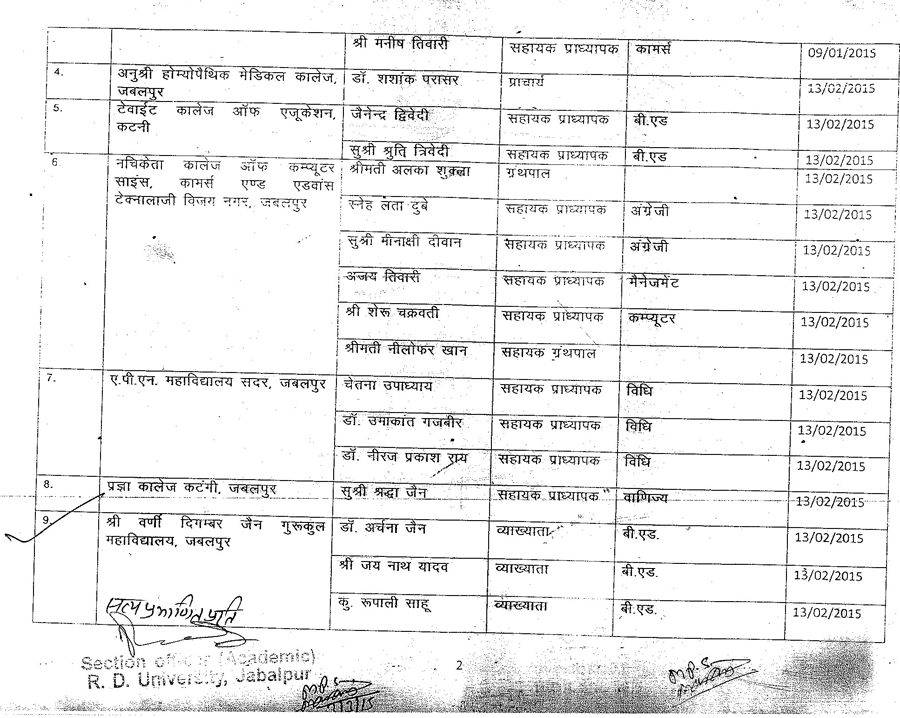 श्री मनीष तिवारी सहायक प्राध्यापक कामर्स 09/01/2015
4. अनुश्री होम्योपैथिक मेडिकल कालेज, डॉ. शशांक परासर प्राचार्य 13/02/2015
जबलपुर
5. टेवाईट कालेज ऑफ एजूकेशन, जैनेन्द्र द्विवेदी सहायक प्राध्यापक बी.एड 13/02/2015
कटनी
सुश्री श्रुति त्रिवेदी सहायक प्राध्यापक बी.एड 13/02/2015
6 नचिकेता कालेज ऑफ कम्प्यूटर श्रीमती अलका शुक्ला ग्रंथपाल 13/02/2015
साइंस, कामर्स एण्ड एडवांस
टेक्नालाजी विजय नगर, जबलपुर स्नेह लता दुबे सहायक प्राध्यापक अंग्रेजी 13/02/2015
सुश्री मीनाक्षी दीवान सहायक प्राध्यापक अंग्रेजी 13/02/2015
अजय तिवारी सहायक प्राध्यापक मैनेजमेंट 13/02/2015
श्री शेरू चक्रवती सहायक प्राध्यापक कम्प्यूटर 13/02/2015
श्रीमती नीलोफर खान सहायक ग्रंथपाल 13/02/2015
7. ए.पी.एन. महाविद्यालय सदर, जबलपुर चेतना उपाध्याय सहायक प्राध्यापक विधि 13/02/2015
डॉ. उमाकांत गजबीर सहायक प्राध्यापक विधि 13/02/2015
डॉ. नीरज प्रकाश राय सहायक प्राध्यापक विधि 13/02/2015
8. प्रज्ञा कालेज कटंगी, जबलपुर सुश्री श्रद्धा जैन सहायक प्राध्यापक वाणिज्य 13/02/2015
9. श्री वर्णी दिगम्बर जैन गुरूकुल डॉ. अर्चना जैन व्याख्याता बी.एड. 13/02/2015
महाविद्यालय, जबलपुर
श्री जय नाथ यादव व्याख्याता बी.एड. 13/02/2015
कु. रूपाली साहू व्याख्याता बी.एड. 13/02/2015
सत्य प्रमाणित प्रति
Section officer (Academic)
R. D. University, Jabalpur
2